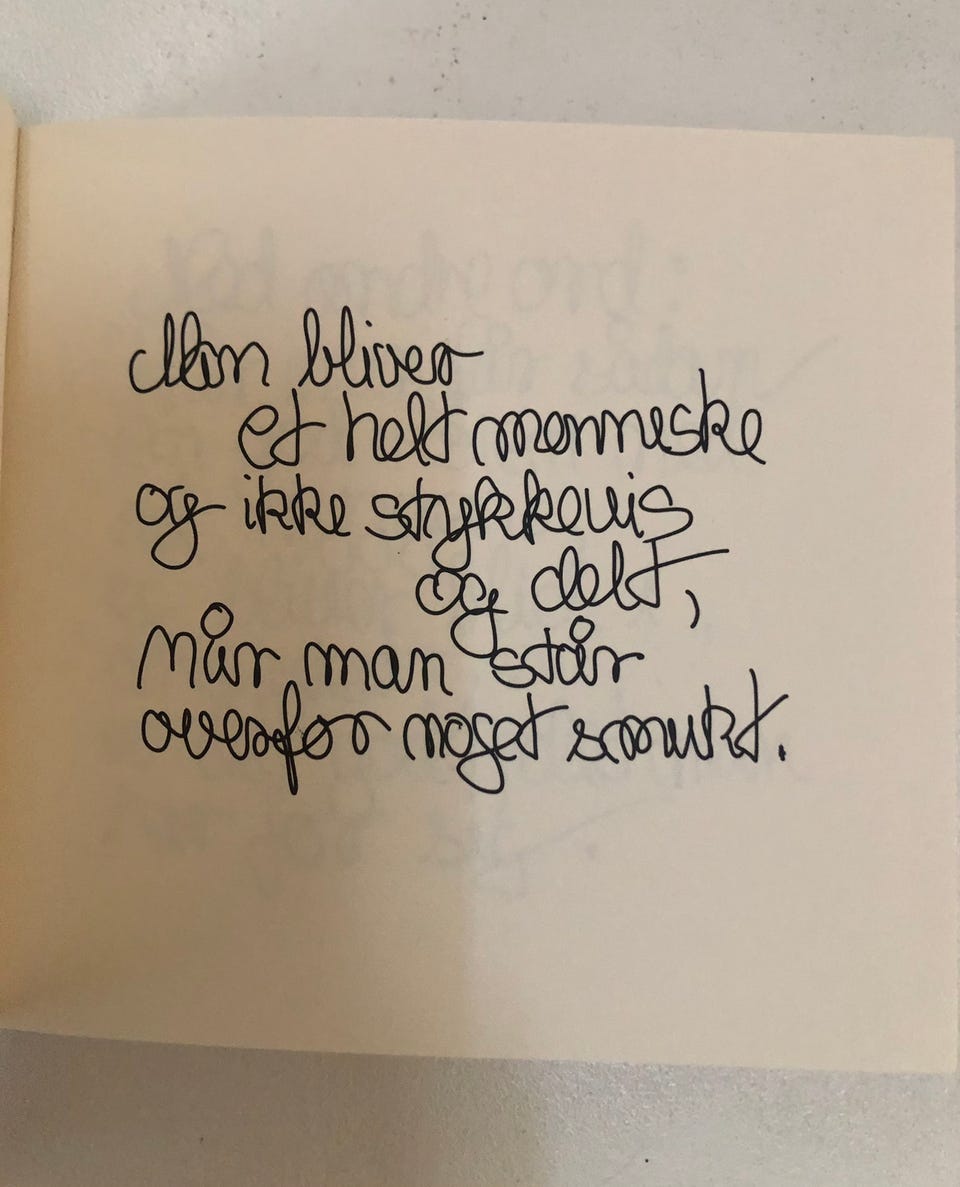 Man bliver
et helt menneske
og ikke stykkevis
og delt,
når man står
overfor noget smukt.